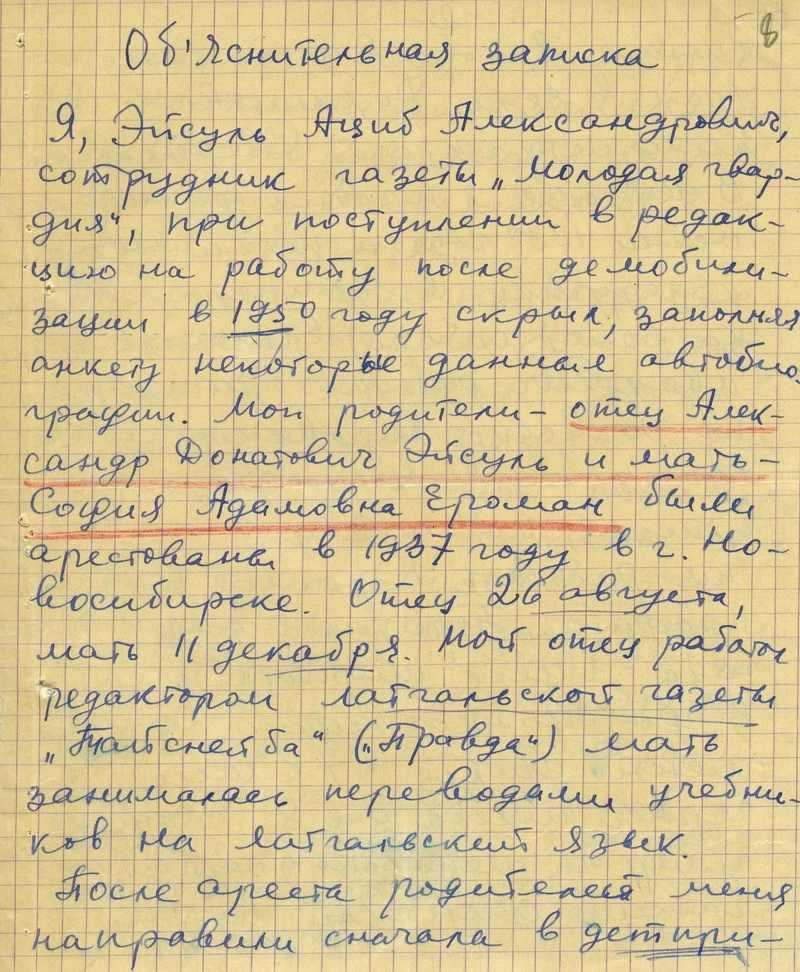 8
Об'яснительная записка
Я, Эйсуль Ациб Александрович,
сотрудник газеты „Молодая гвар-
дия“, при поступлении в редак-
цию на работу после демобили-
зации в 1950 году скрыл, заполняя
анкету некоторые данные автобио-
графии. Мои родители – отец Алек-
сандр Донатович Эйсуль и мать –
София Адамовна Ероман были
арестованы в 1937 году в г. Но-
восибирске. Отец 26 августа,
мать 11 декабря. Мой отец работал
редактором латгальской газеты
„Тайснейба“ („Правда“) мать
занималась переводами учебни-
ков на латгальский язык.
После ареста родителей меня
направили сначала в детпри-